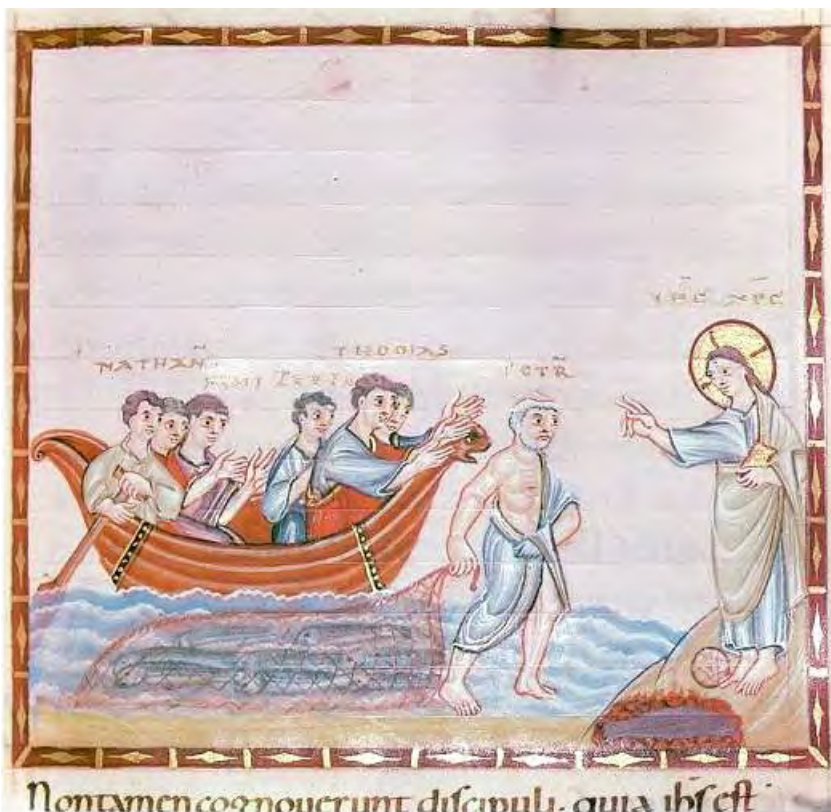 IH̅C XP̅C
THOMAS
NATHAN̅
PETR̅
Non tamen cognouerunt discipuli. quia ih̅s est